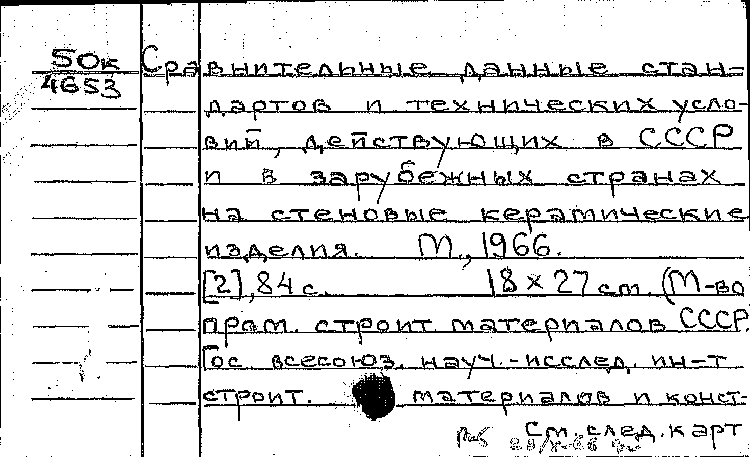 50к
4653
Сравнительные данные стан-
дартов и технических усло-
вий, действующих в СССР
и в зарубежных странах
на стеновые керамические
изделия. М., 1966.
[2], 84 с. 18 × 27 см. (М-во
пром. строит материалов СССР.
Гос всесоюз. науч.-исслед. ин-т
строит. материалов и конст-
см. след. карт